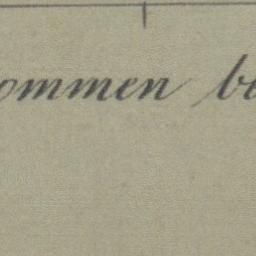 ommen be